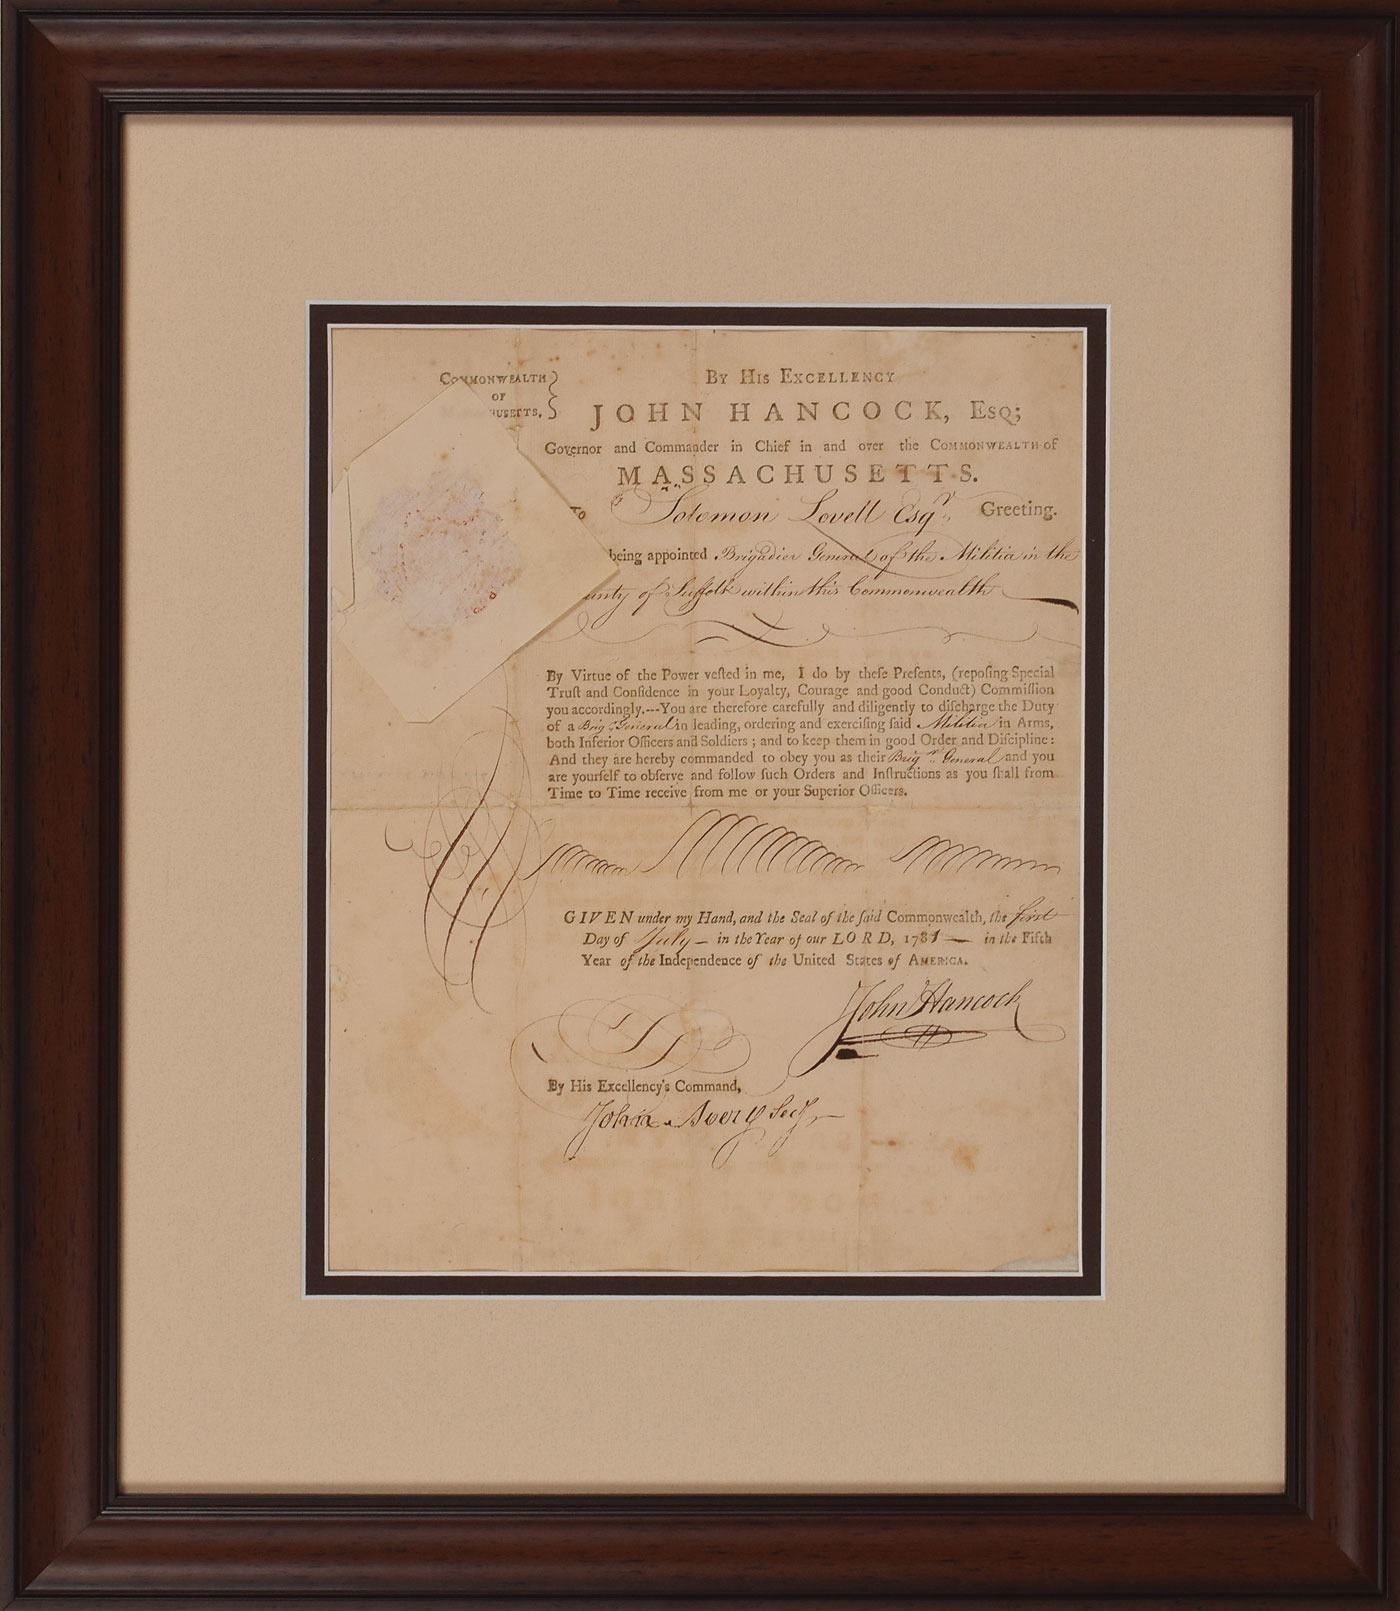 COMMONWEALTH
OF
HUSETTS.
BY HIS EXCELLENCY
JOHN HANCOCK, ESQ;
Governor and Commander in Chief in and over the COMMONWEALTH of
MASSACHUSETTS.
To Solomon Lovell Esqr. Greeting.
being appointed Brigadier General of the Militia in the
unty of Suffolk within this Commonwealth
By Virtue of the Power veſted in me, I do by theſe Preſents, (repoſing Special
Truſt and Confidence in your Loyalty, Courage and good Conduct) Commiſſion
you accordingly.---You are therefore carefully and diligently to diſcharge the Duty
of a Brigr. General in leading, ordering and exerciſing ſaid Militia in Arms,
both Inferior Officers and Soldiers; and to keep them in good Order and Diſcipline:
And they are hereby commanded to obey you as their Brigr. General and you
are yourſelf to obſerve and follow ſuch Orders and Inſtructions as you ſhall from
Time to Time receive from me or your Superior Officers.
GIVEN under my Hand, and the Seal of the ſaid Commonwealth, the first
Day of July — in the Year of our LORD, 1781 — in the Fifth
Year of the Independence of the United States of AMERICA.
John Hancock
By His Excellency's Command,
John Avery Secy